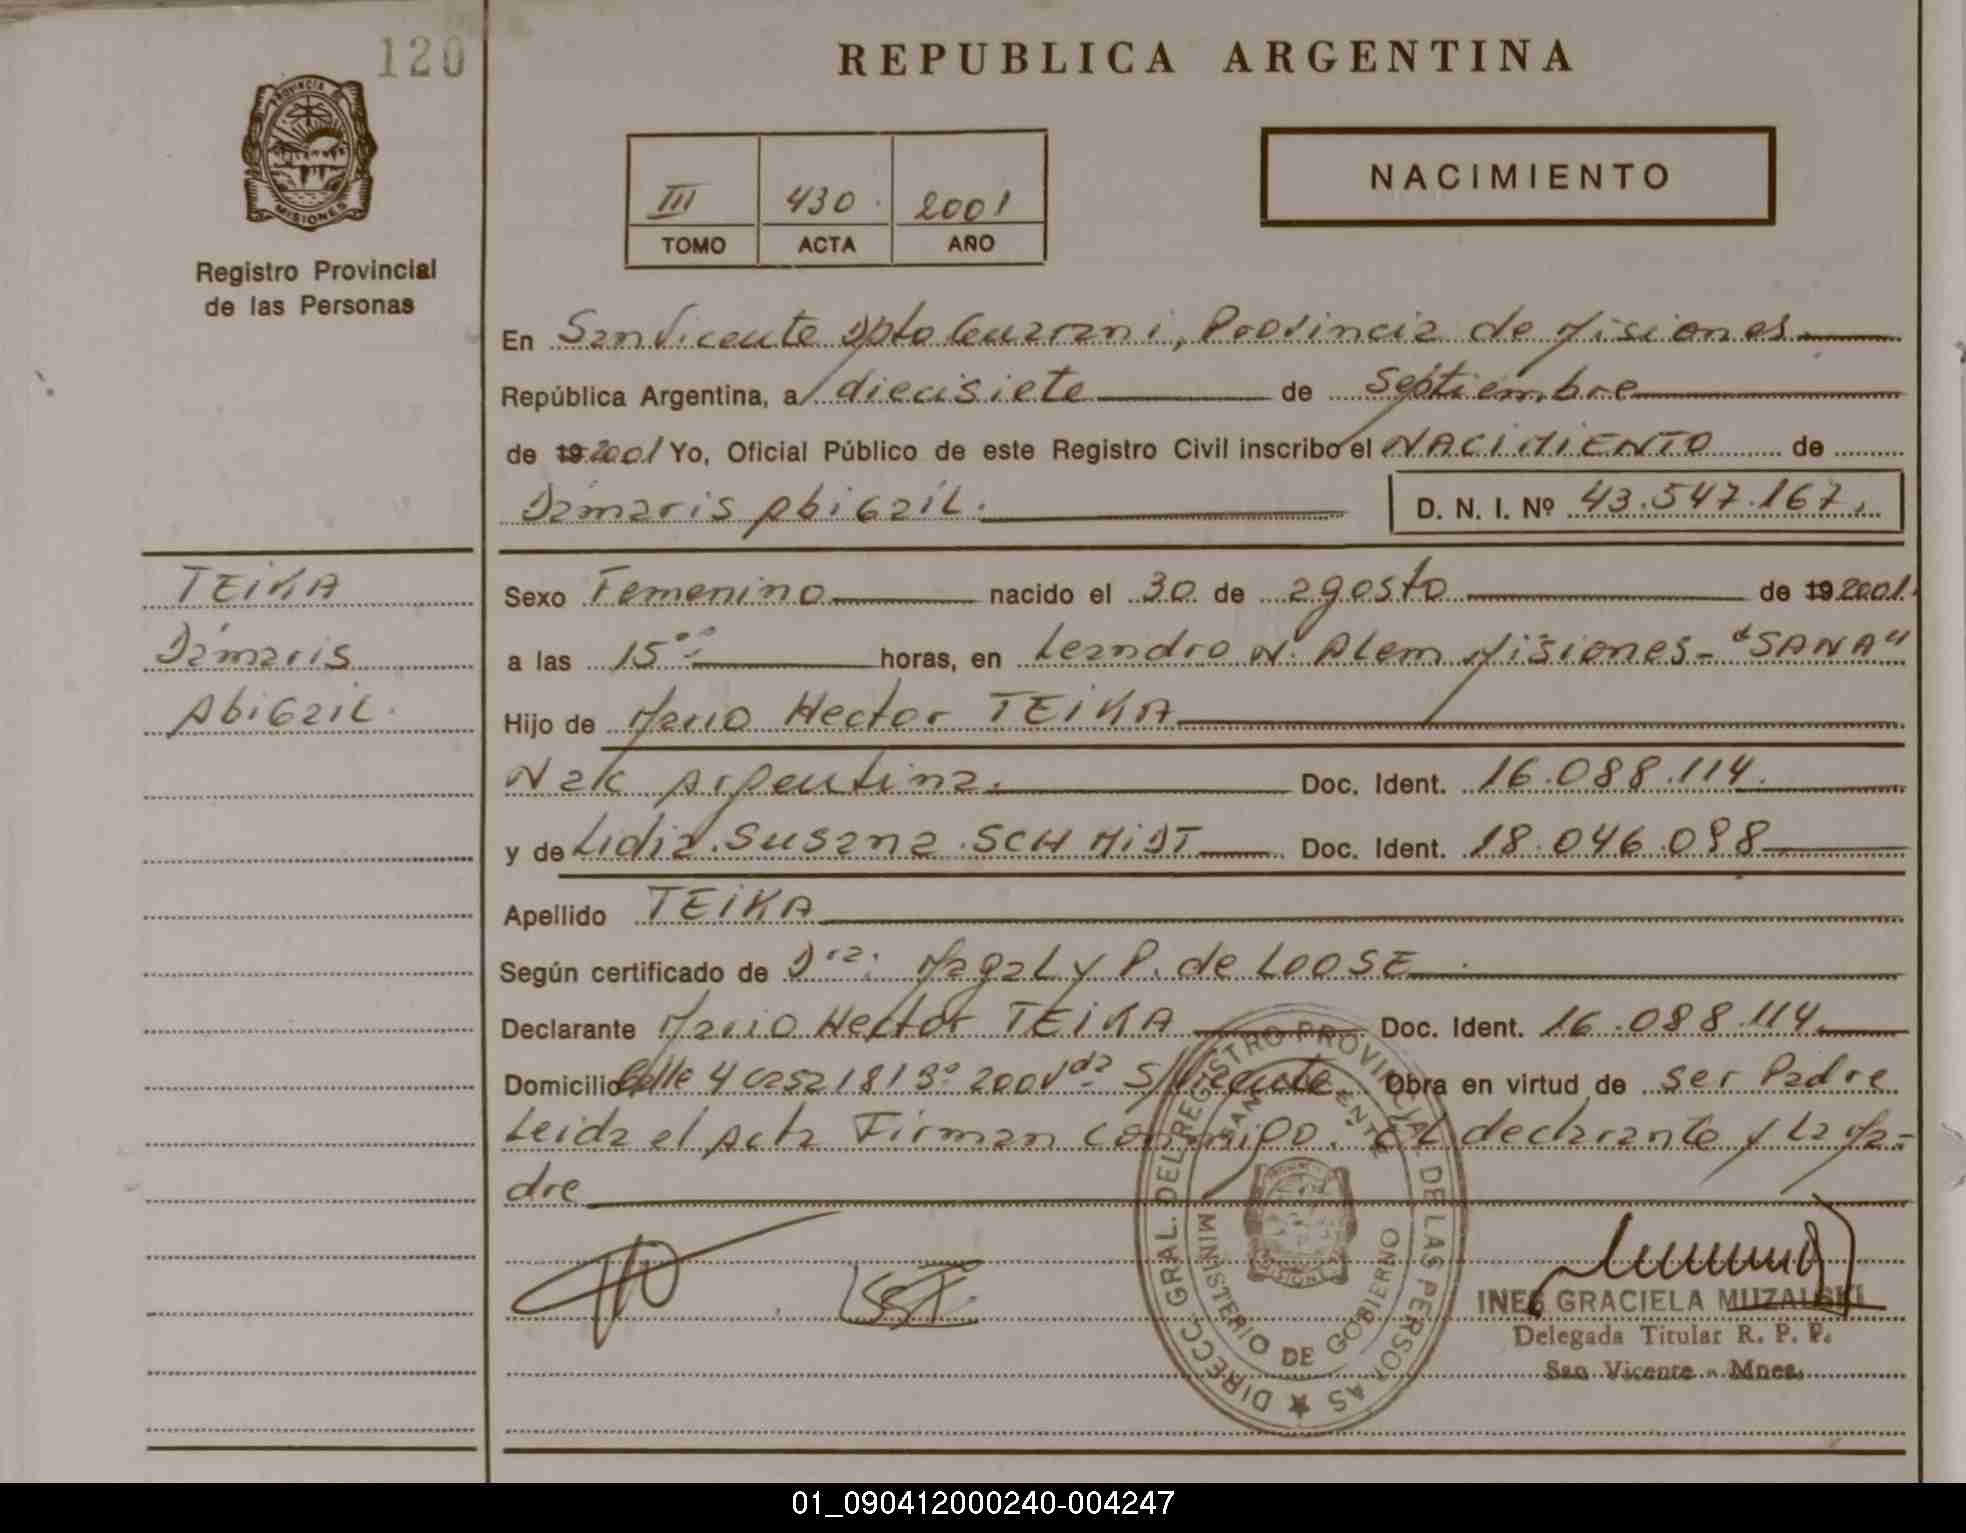 120
REPUBLICA ARGENTINA
PROVINCIA DE
MISIONES
Registro Provincial
de las Personas
III 430 2001
TOMO ACTA AÑO
NACIMIENTO
En San Vicente Dpto Guarani, Provincia de Misiones
República Argentina, a diecisiete de Septiembre
de 19 2001 Yo, Oficial Público de este Registro Civil inscribo el NACIMIENTO de
Dámaris Abigail. D. N. I. Nº 43.547.167.
TEIKA
Dámaris
Abigail.
Sexo Femenino nacido el 30 de agosto de 19 2001.
a las 15 horas, en Leandro N. Alem Misiones - "SANA"
Hijo de Mario Hector TEIKA
Nac Argentina. Doc. Ident. 16.088.114.
y de Lidia Susana SCHMIDT Doc. Ident. 18.046.098
Apellido TEIKA
Según certificado de Dra: Magaly P. de LOOSE
Declarante Mario Hector TEIKA Doc. Ident. 16.088.114
Domicilio Calle 4 casa 181 Bº 200 Vdas S/Vicente Obra en virtud de ser Padre
Leida el Acta Firman conmigo. el declarante y la Ma-
dre
DIRECC. GRAL. DEL REGISTRO PROVINCIAL DE LAS PERSONAS
SAN VICENTE
MINISTERIO DE GOBIERNO
INES GRACIELA MUZALSKI
Delegada Titular R. P. P.
San Vicente - Mnes.
01_090412000240-004247